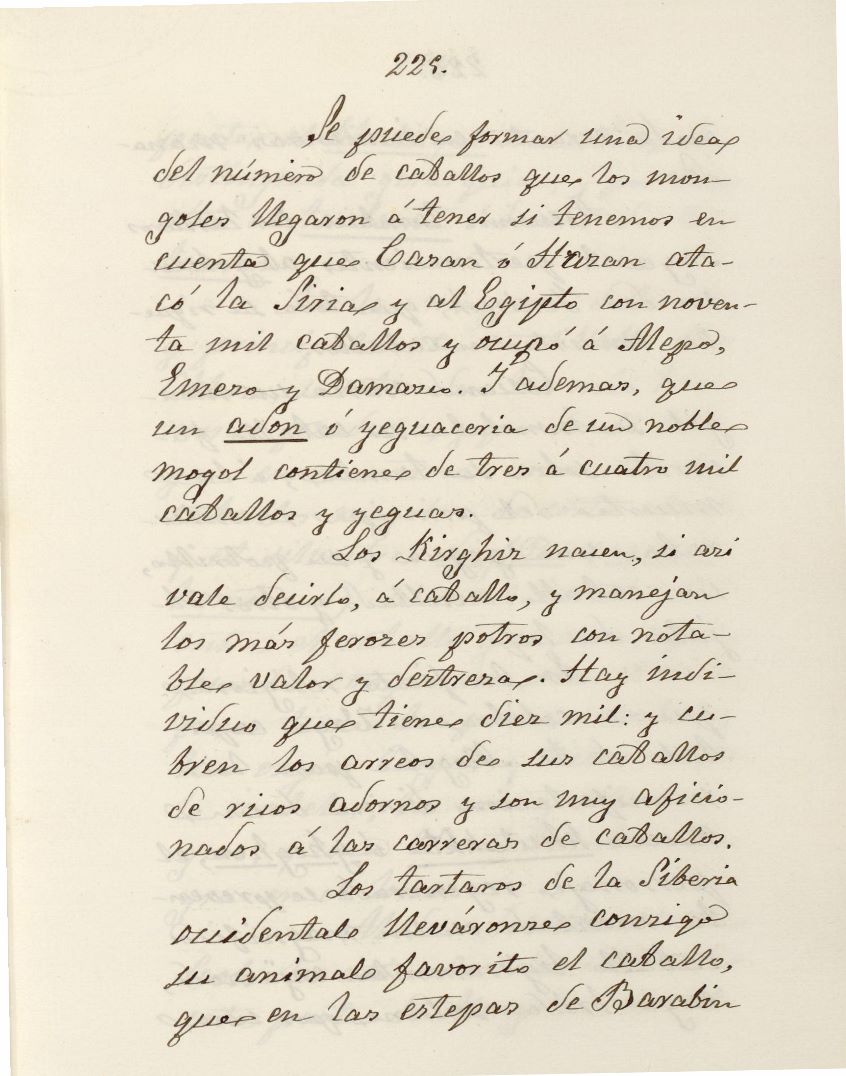 225.
Se puede formar una idea
del número de caballos que los mon-
goles llegaron á tener si tenemos en
cuenta que Casan ó Hazan ata-
có la Siria y al Egipto con noven-
ta mil caballos y ocupó á Alepo,
Emero y Damasco. Y ademas, que
un adon ó yeguaceria de un noble
mogol contiene de tres á cuatro mil
caballos y yeguas.
Los Kirghiz nacen, si asi
vale decirlo, á caballo, y manejan
los más feroces potros con nota-
ble valor y destreza. Hay indi-
viduo que tiene diez mil: y cu-
bren los arreos de sus caballos
de ricos adornos y son muy aficio-
nados á las carreras de caballos.
Los tartaros de la Siberia
occidental lleváronse consigo
su animal favorito el caballo,
que en las estepas de Barabin